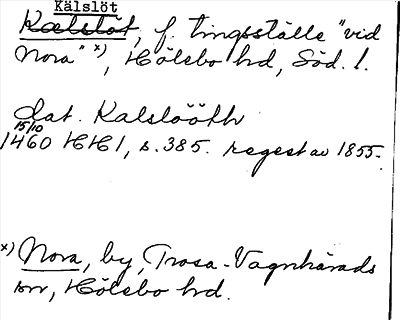 Källslöt
Kælslöt, f. tingsställe "vid
Nora" x), Hölebo hd, Söd. l.
dat. Kalslööth
15/10
1460 HH 1, s. 385. regest av 1855.
x) Nora, by, Trosa-Vagnhärads
sn, Hölebo hd.